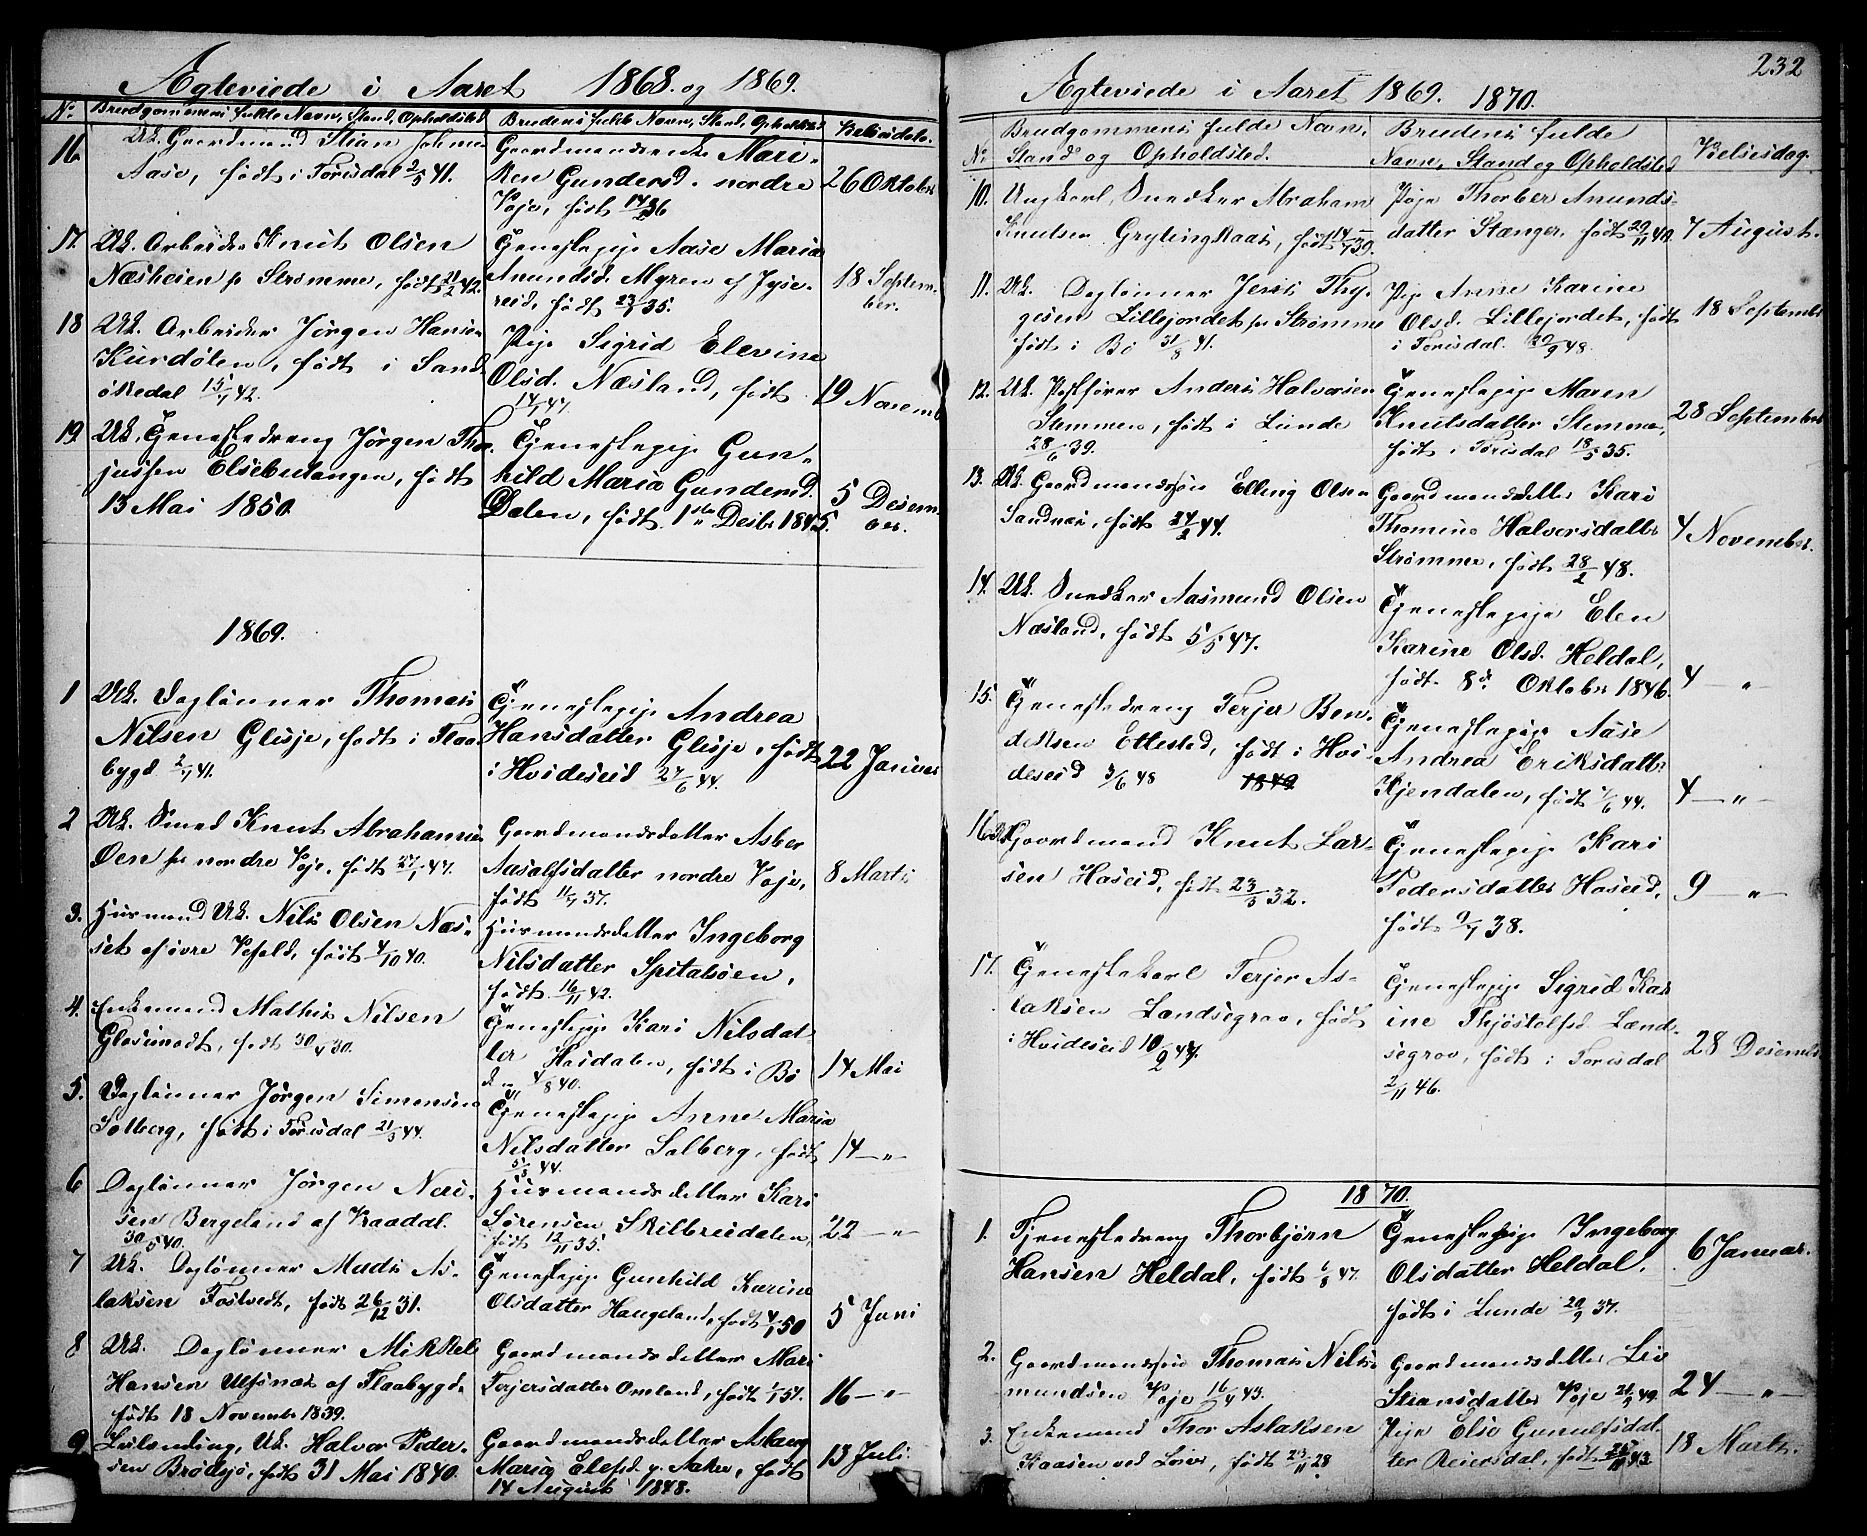 Ægteviede i Aaret 1868. og 1869.
No Brudgommens fulde Navn, Stand, Opholdsted
Brudens fulde Navn, Stand, Opholdsted
Vielsesdato.
16. Uk. Gaardmand Stian Johnsen
Aase, født i Tørisdal 2/5 41.
Gaardmandsenke Mari-
ken Gundersd. nordre
Vaje, født 14/2 36
26 Oktober
17. Uk. Arbeider Knut Olsen
Næsheien p Strømme, født 21/2 42.
Tjenestepige Aase Maria
Anundsd. Myren af Jyse-
reid, født 23/1 35.
18 Septem-
ber.
18 Uk. Arbeider Jørgen Hansen
Kurdølen, født i Sand-
økedal 15/1 42.
Pige Sigrid Elevine
Olsd. Næsland, født
14/1 47.
19 Novemb
19. Uk. Tjenestedreng Jørgen Tho-
jussen Elsebutangen, født
13 Mai 1850.
Tjenestepige Gun-
hild Maria Gundersd.
Dalen, født 1ste Desbr 1845.
5 Desem-
ber.
1869.
1 Uk. Daglønner Thomas
Nilsen Glisje, født i Flaa-
bygd 2/1 41.
Tjenestepige Andrea
Hansdatter Glisje, født
i Hvideseid 27/6 44.
22 Januar
2 Uk. Smed Knut Abrahams.
Øen fra nordre Vaje, født 27/1 47.
Gaardmandsdatter Asber
Aasulfsdatter nordre Vaje,
født 11/7 37.
8 Marts
3. Husmand Uk. Nils Olsen Næs-
set af øvre Vefald, født 4/10 40.
Husmandsdatter Ingeborg
Nilsdatter Spitalsøen,
født 16/11 42.
4. Enkemand Mathis Nilsen
født 30/4 30.
Tjenestepige Kari Nilsdat-
ter Hasdalen, født i Bø
4/8 40.
14 Mai
5. Daglønner Jørgen Simonsen
Solberg, født i Tørisdal 21/5 44.
Tjenestepige Anne Maria
Nilsdatter Solberg, født
5/3 44.
14 — " —
6 Daglønner Jørgen Neri-
sen Bergeland af Kraadal.
30/5 40.
Husmandsdatter Kari
Sørensen Skilbreidalen,
født 12/11 35.
22 — " —
7 Uk. Daglønner Mads As-
laksen Tostvedt, født 26/12 31.
Tjenestepige Gunhild Karine
Olsdatter Haugeland, født 4/1 50
5 Juni
8 Uk. Daglønner Mikkel
Hansen Ulfsnæs af Flaabygd.
født 18 November 1839.
Gaardmandsdatter Mari
Terjersdatter Omland, født 1/1 51.
16 — " —
9 Uk. Halvor Peder-
sen Brødsjø, født 31 Mai 1840.
Gaardmandsdatter Asberg
Maria Elefsd. p. Aaker, født
14 August 1848.
13 Juli.
232
Ægteviede i Aaret 1869. 1870.
No Brudgommens fulde Navn,
Stand og Opholdsted.
Brudens fulde
Navn, Stand og Opholdsted
Vielsesdag.
10. Ungkarl, Snedker Abraham
Knutsen Grytingkaas, født 14/7 39.
Pige Thorber Anunds-
datter Stanger, født 29/11 40.
7 August.
11. Uk. Daglønner Jens Thy-
gesen Lillejordet fra Strømme
født i Bø 31/8 41.
Pige Anne Karine
Olsd. Lillejordet, født
i Tørisdal. 30/9 48.
18 September
12. Uk. Postfører Anders Halvorsen
Stemmen, født i Lunde
28/6 39.
Tjenestepige Maren
Knutsdatter Stemmen,
født i Tørisdal 18/5 35.
28 September
13. Uk. Gaardmandssøn Elling Olsen
Sandnæs, født 24/2 44.
Gaardmandsdatter Kari
Thomine Halvorsdatter
Strømme, født 28/2 48.
4 November.
14. Uk. Snedker Aasmund Olsen
Næsland, født 5/5 47.
Tjenestepige Elen
Karine Olsd. Heldal,
født 8de Oktober 1846.
4 — " —
15. Tjenestedreng Terjer Ben-
diksen Ettestad, født i Hvi-
deseid 3/6 48 1849
Tjenestepige Aase
Andrea Eriksdatter
Kjendalen, født 1/6 44.
4 — " —
16. Uk. Gaardmand Knut Lar-
sen Haseid, født 23/5 32.
Tjenestepige Kari
Pedersdatter Haseid,
født 9/1 38.
9 — " —
17. Tjenestekarl Terjer As-
laksen Landsegrav, født
i Hvideseid 10/2 47.
Tjenestepige Sigrid Kar-
ine Thjøstolfsd Land-
segrav, født i Tørisdal
2/11 46.
28 Desembr
1870.
1. Tjenestedreng Thorbjørn
Hansen Heldal, født 6/8 47.
Tjenestepige Ingeborg
Olsdatter Heldal,
født i Lunde 20/9 37.
6 Januar.
2. Gaardmandssøn Thomas Nils-
mundsen Vaje 16/4 43.
Gaardmandsdatter Liv
Stiansdatter Vaje 21/9 49.
24 — " —
3. Enkemand Thor Aslaksen
Kaasen ved født 23/11 28
Pige Else Gunulfsdat-
ter Reiersdal, født 25/11 43.
18 Marts.